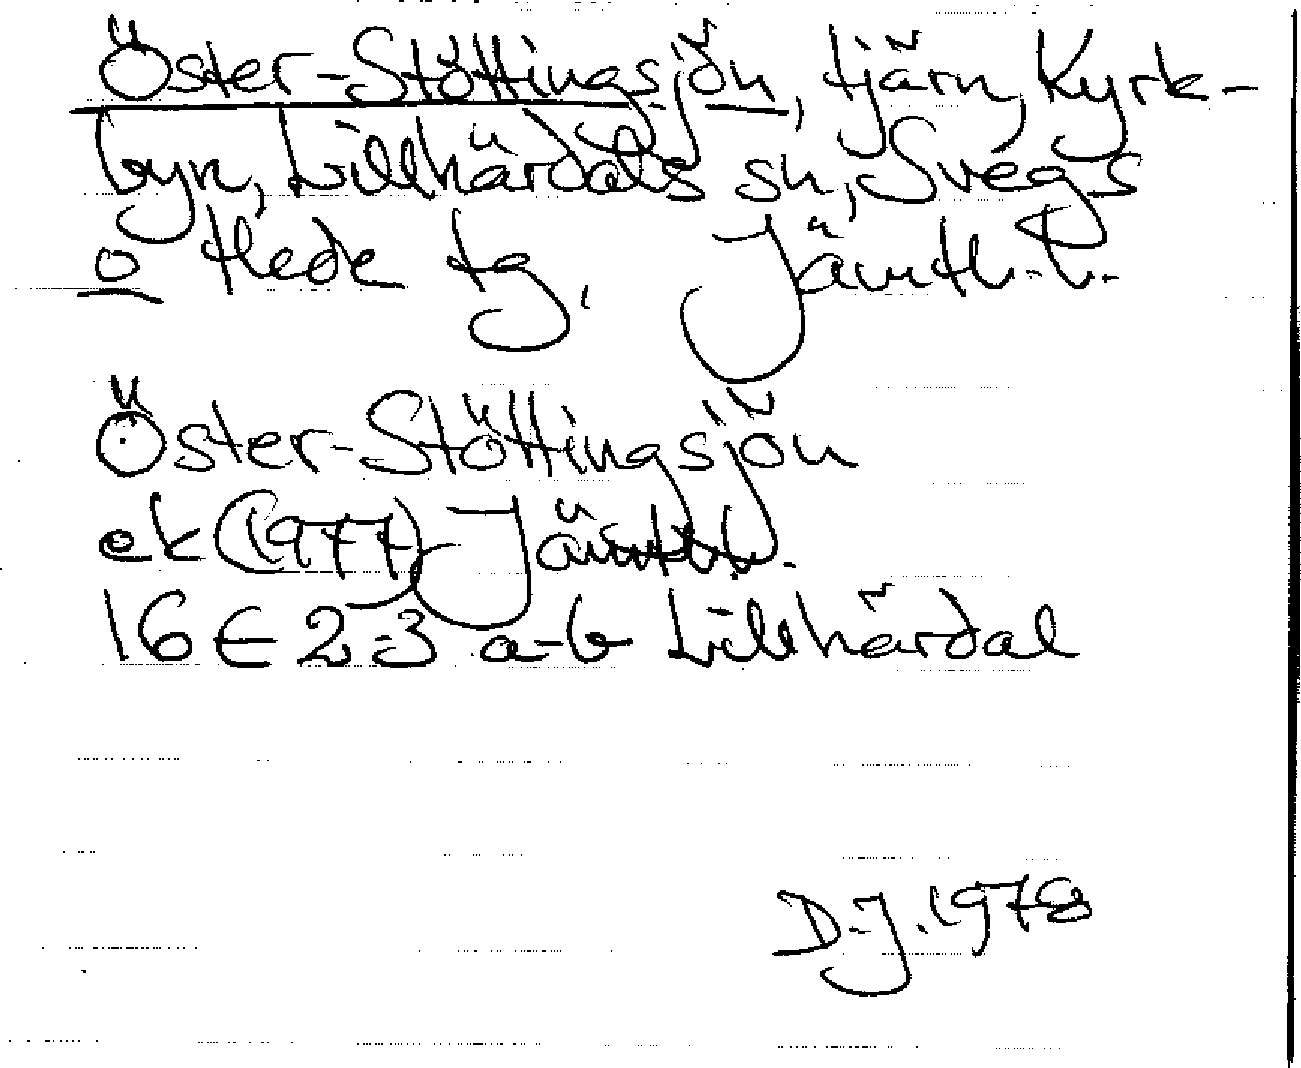 Öster-Stöttingsjön, tjärn, Kyrk-
byn, Lillhärdals sn, Svegs
o Hede tg. Jämtl. l.
Öster-Stöttingsjön
ek (1977) Jämtl.
16 E 2-3 a-b Lillhärdal
D-J. 1978